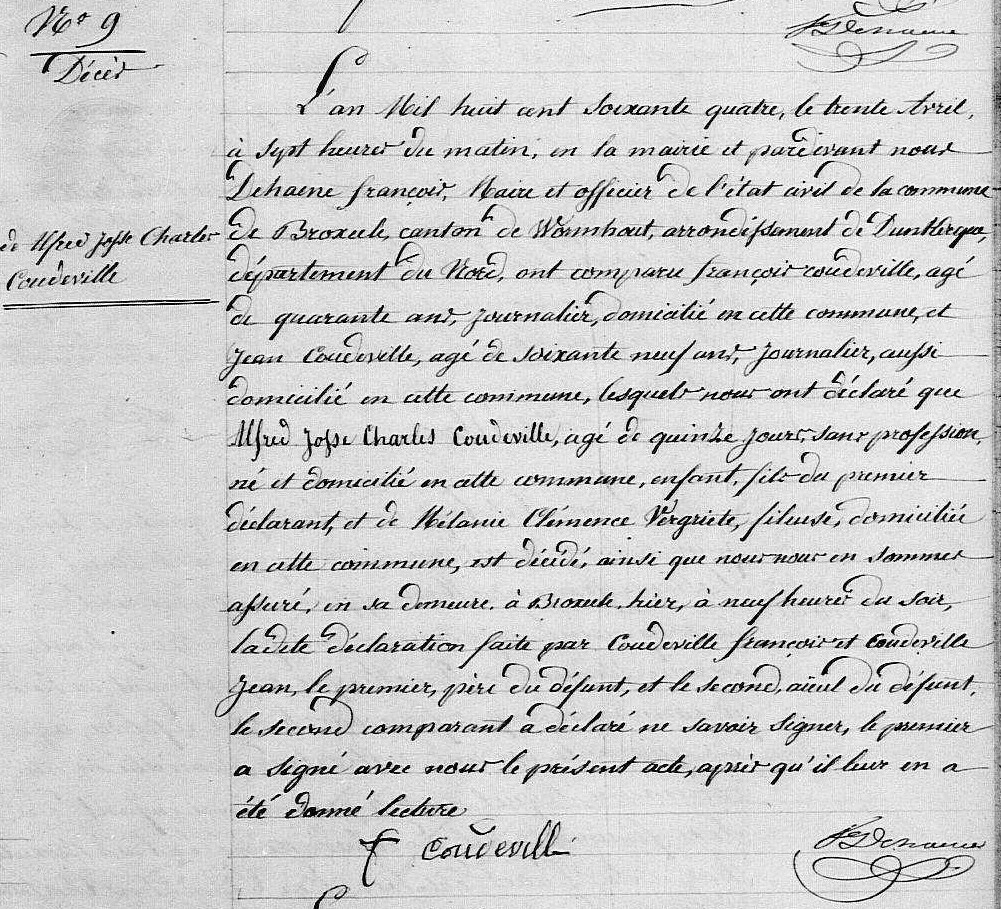 N° 9
Décès
de Alfred Josse Charles
Coudeville
L'an Mil huit cent soixante quatre, le trente Avril,
à sept heures du matin, en la mairie et pardevant nous
Dehaene françois, Maire et officier de l'état civil de la commune
de Broxeele, canton de Wormhout, arrondissement de Dunkerque,
département du Nord, ont comparu françois coudeville, agé
de quarante ans, journalier, domicilié en cette commune, et
Jean Coudeville, agé de soixante neuf ans, journalier, aussi
domicilié en cette commune, lesquels nous ont déclaré que
Alfred Josse Charles Coudeville, agé de quinze jours, sans profession,
né et domicilié en cette commune, enfant, fils du premier
déclarant, et de Mélanie Clémence Vergriete, fileuse, domiciliée
en cette commune, est décédé, ainsi que nous nous en sommes
assuré, en sa demeure, à Broxeele, hier, à neuf heures du soir,
ladete déclaration faite par Coudeville françois et Coudeville
Jean, le premier, père du défunt, et le second, aïeul du défunt,
le second comparant a déclaré ne savoir signer, le premier
a signé avec nous le présent acte, après qu'il leur en a
été donné lecture
f Coudeville
fs Dehaene